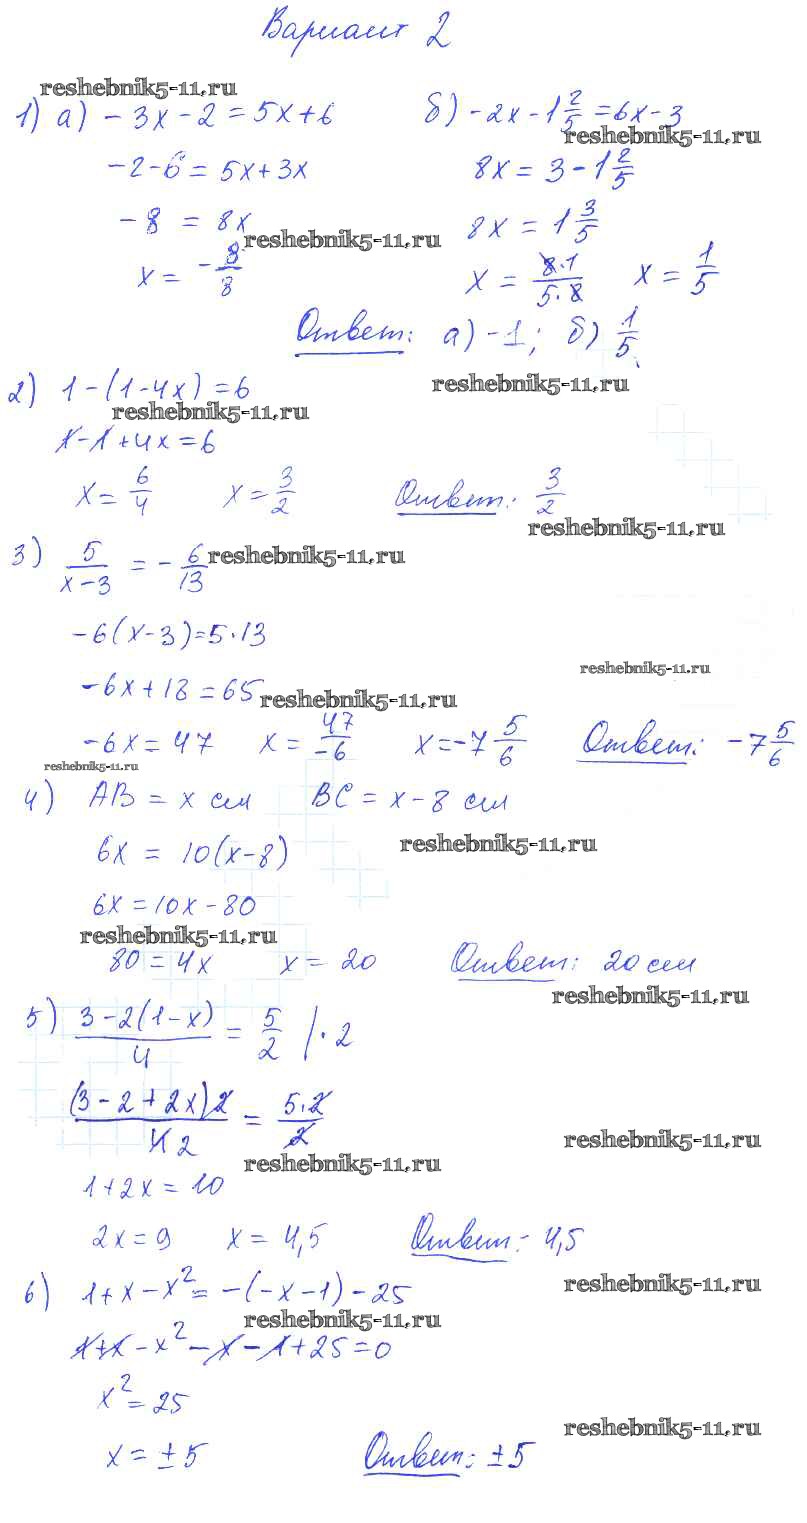 Вариант 2
reshebnik5-11.ru
1) а) -3x - 2 = 5x + 6
б) -2x - 1 2/5 = 6x - 3
reshebnik5-11.ru
-2 - 6 = 5x + 3x
8x = 3 - 1 2/5
-8 = 8x
8x = 1 3/5
reshebnik5-11.ru
x = -8/8
x = 8·1/5·8
x = 1/5
Ответ: а) -1; б) 1/5.
reshebnik5-11.ru
2) 1 - (1 - 4x) = 6
reshebnik5-11.ru
1 - 1 + 4x = 6
x = 6/4
x = 3/2
Ответ: 3/2
reshebnik5-11.ru
3) 5/(x - 3) = -6/13
reshebnik5-11.ru
-6(x - 3) = 5·13
reshebnik5-11.ru
-6x + 18 = 65
reshebnik5-11.ru
-6x = 47
x = 47/-6
x = -7 5/6
Ответ: -7 5/6
reshebnik5-11.ru
4) AB = x см
BC = x - 8 см
6x = 10(x - 8)
reshebnik5-11.ru
6x = 10x - 80
reshebnik5-11.ru
80 = 4x
x = 20
Ответ: 20 см
reshebnik5-11.ru
5) (3 - 2(1 - x))/4 = 5/2 | · 2
(3 - 2 + 2x)2/4 2 = 5·2/2
reshebnik5-11.ru
reshebnik5-11.ru
1 + 2x = 10
2x = 9
x = 4,5
Ответ: 4,5
6) 1 + x - x² = -(-x - 1) - 25
reshebnik5-11.ru
reshebnik5-11.ru
1 + x - x² - x - 1 + 25 = 0
x² = 25
reshebnik5-11.ru
x = ±5
Ответ: ±5